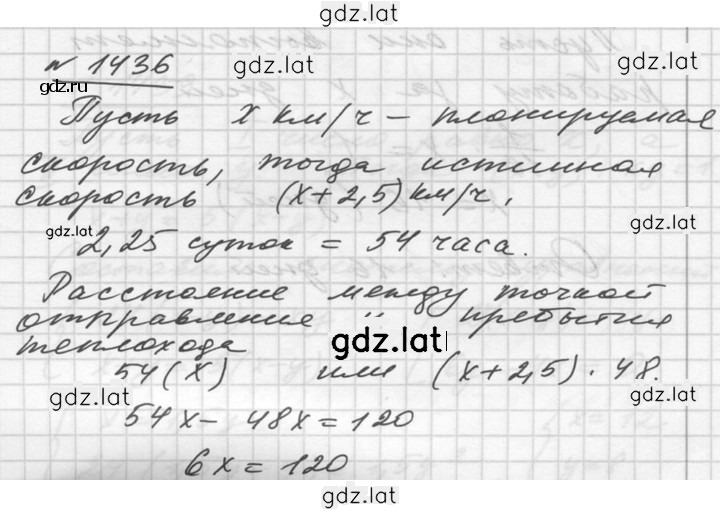 gdz.lat
№ 1436
gdz.lat
gdz.ru
Пусть х км/ч – планируемая
gdz.lat
скорость, тогда истинная
скорость (х+2,5) км/ч,
gdz.lat
gdz.lat
2,25 суток = 54 часа.
Расстояние между точкой
отправления " прибытия
теплохода
gdz.lat
54(х) или (х+2,5)·48.
gdz.lat
gdz.lat
54х – 48х = 120
6х = 120
gdz.lat